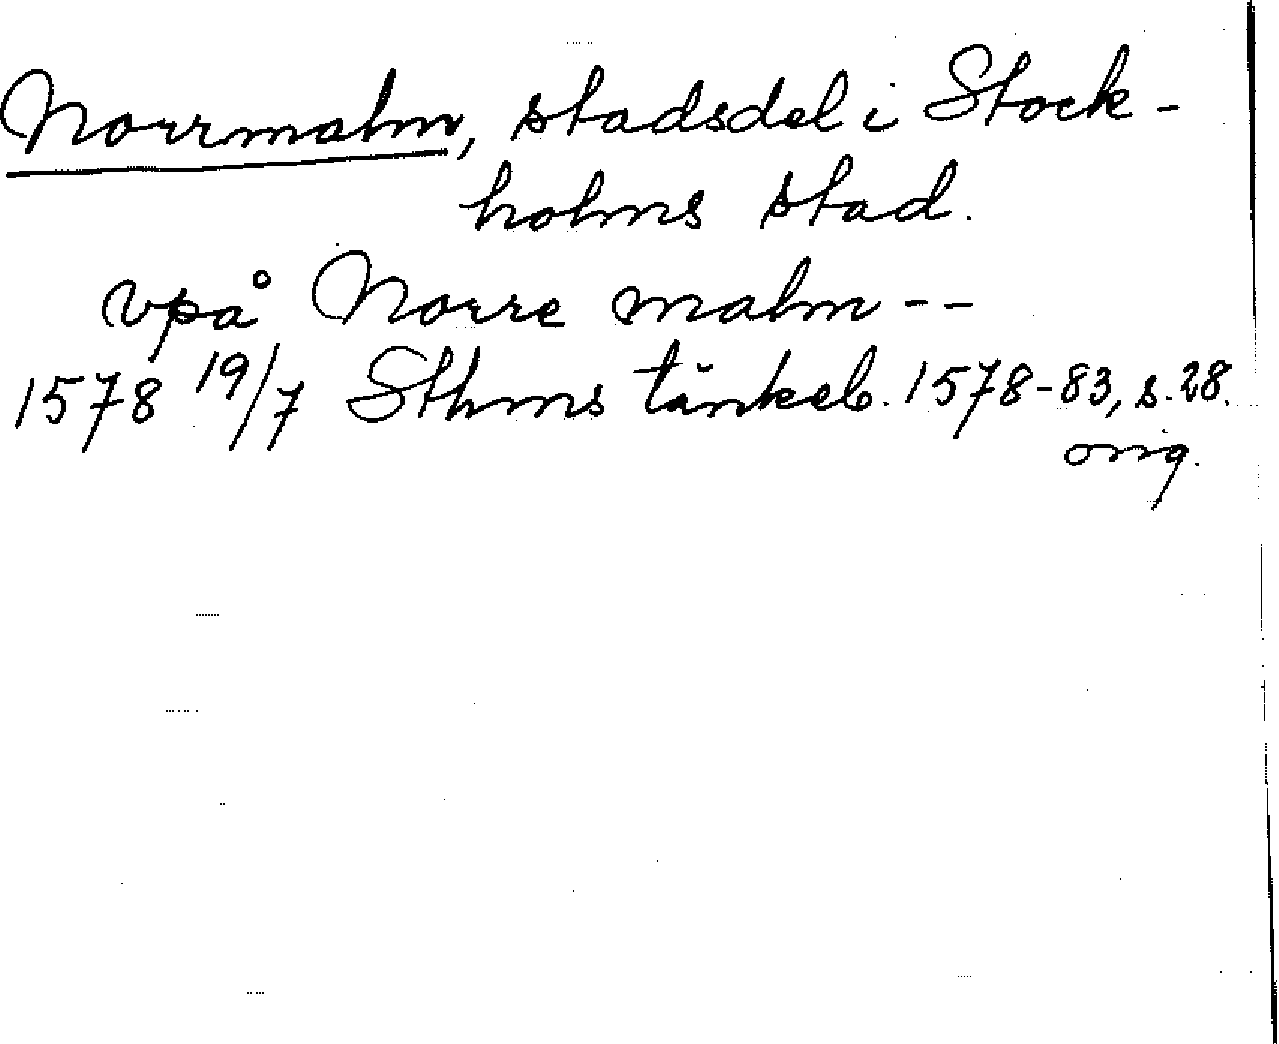 Norrmalm, stadsdel i Stock-
holms stad.
vpå Norre malm --
1578 19/7 Sthms tänkeb. 1578-83, s. 28.
orig.